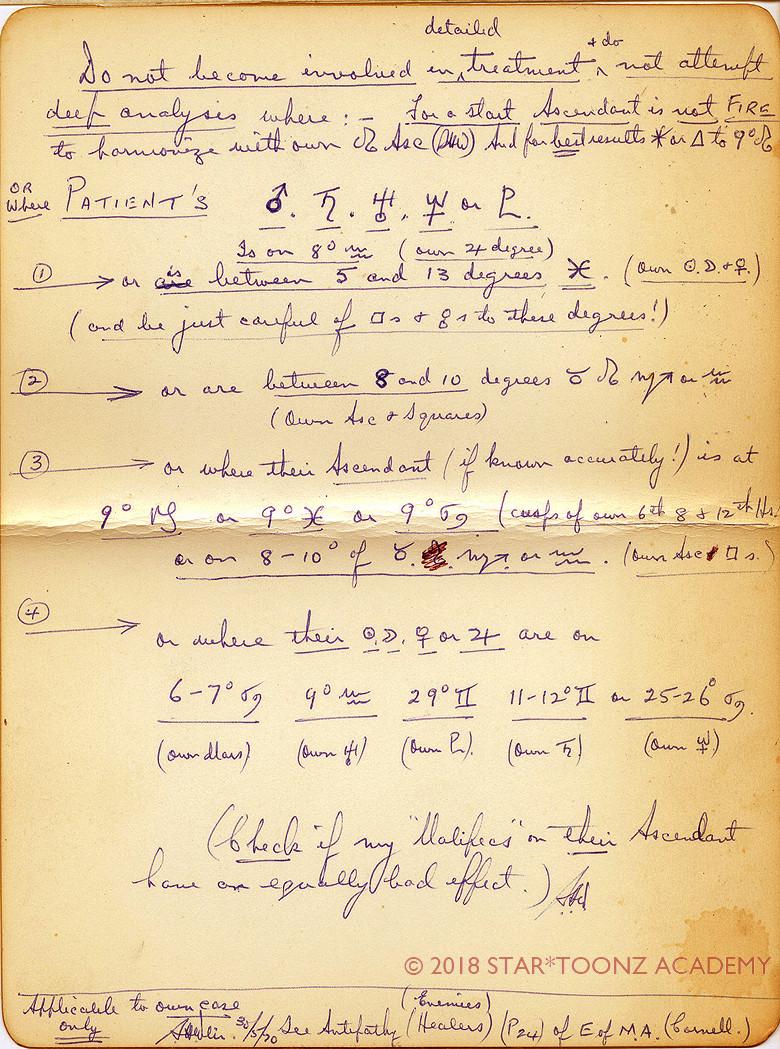 detailed
Do not become involved in ^ treatment + do ^ not attempt
deep analysis where :- For a start Ascendant is not FIRE
to harmonize with own ♌ Asc And for best results ⚹ or △ to 9° ♌
OR Where PATIENT'S ♂. ♄. ♅. ♆ or P.
Is on 8° ♒ (own ♃ degree)
① → or is between 5 and 13 degrees ♓. (own ☉.☽.+♀.)
(and be just careful of □s + ☍s to these degrees!)
② → or are between 8 and 10 degrees ♉ ♌ ♏ or ♒
(Own Asc & Squares)
③ → or where their Ascendant (if known accurately!) is at
9° ♑ or 9° ♓ or 9° ♋ (cusps of own 6th 8 & 12th Hs.
or on 8-10° of ♉. ♏. or ♒. (own Asc □s.)
④ → or where their ☉.☽.♀ or ♃ are on
6-7° ♋ 9° ♒ 29° ♊ 11-12° ♊ or 25-26° ♋.
(own Mars) (own ♅) (own P.) (own ♄) (own ♆)
(Check if my "Malifics" on their Ascendant
have an equally bad effect.)
© 2018 STAR*TOONZ ACADEMY
Applicable to own case
only
30/5/70 See Antipathy (Enemies) (Healers) (P24) of E of M.A. (Cornell.)